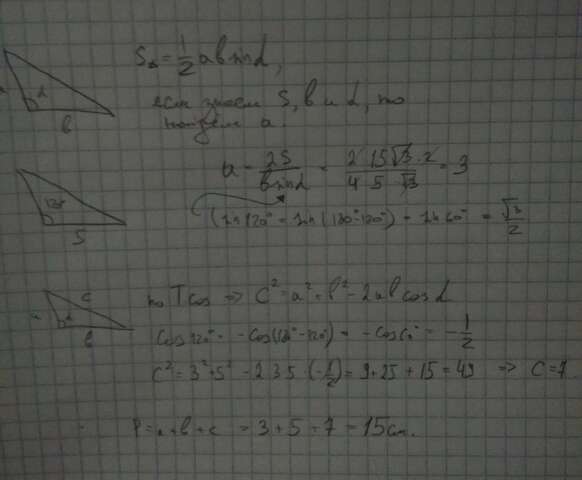 S△ = 1/2 ab sin α,
если знаем S, b и α, то
найдём a.
a
α
b
a = 2S / b sin α = 2·15√3·2 / 4·5·√3 = 3
120°
5
(sin 120° = sin (180°-120°) = sin 60° = √3/2
c
a
α
b
по Tcos => c² = a² + b² - 2ab cos α
cos 120° = -cos(180°-120°) = -cos 60° = -1/2
c² = 3² + 5² - 2·3·5·(-1/2) = 9 + 25 + 15 = 49 => c = 7
P = a + b + c = 3 + 5 + 7 = 15 см.